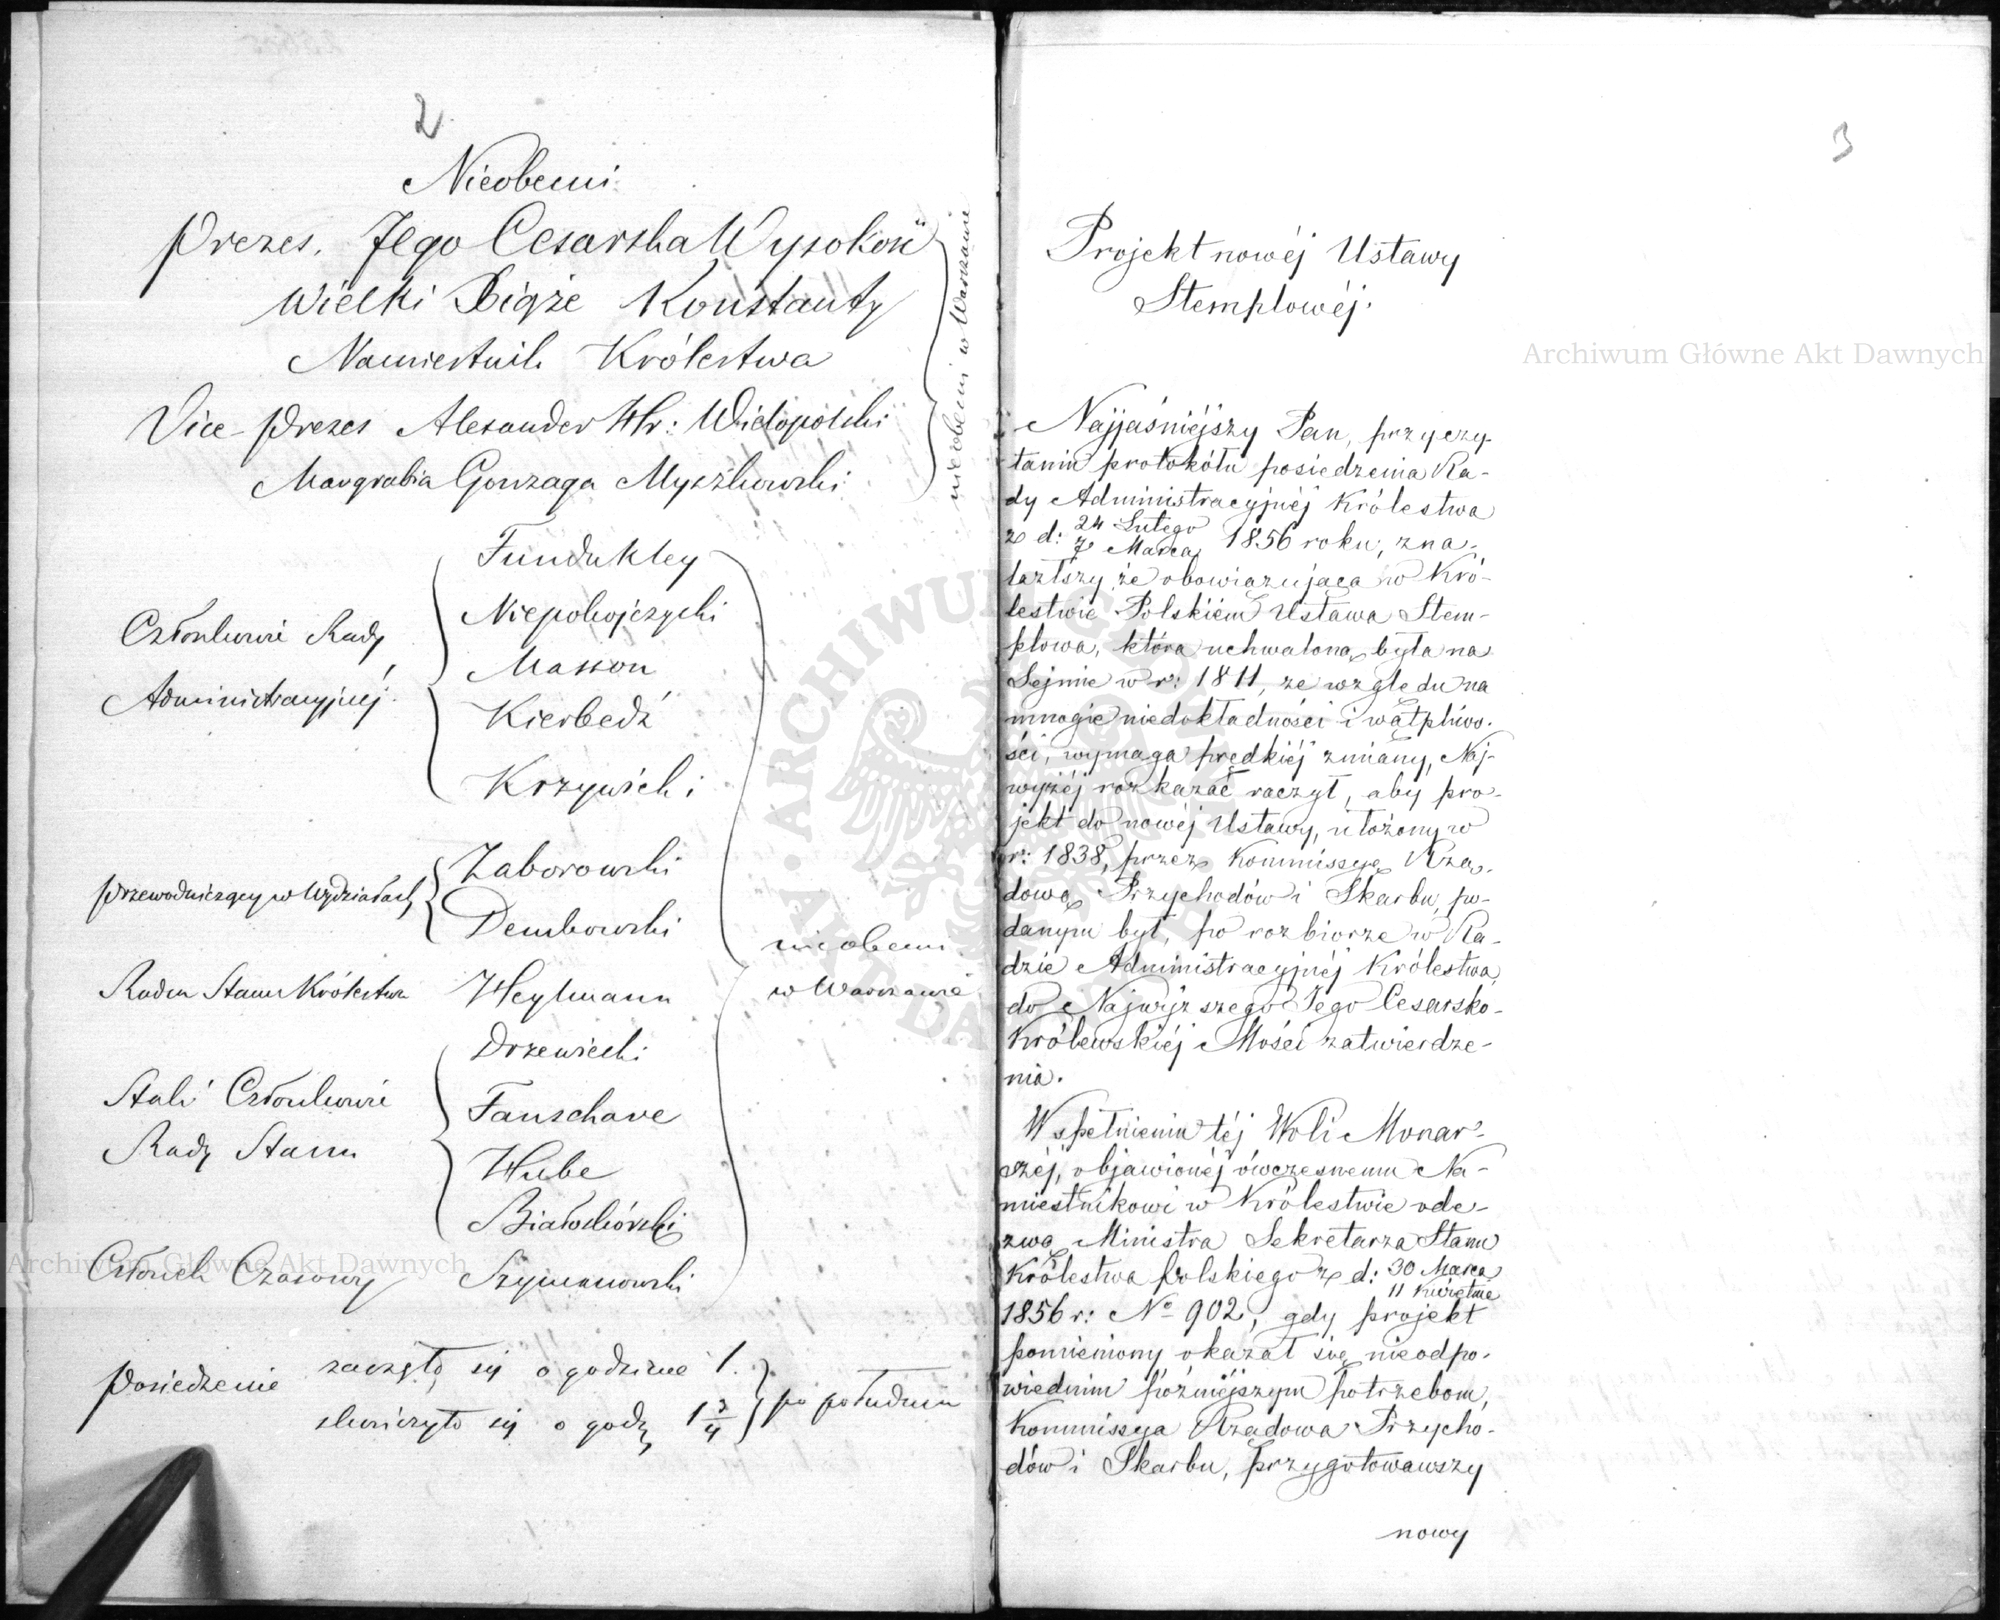 2.
Nieobecni.
Prezes. Jego Cesarska Wysokość
Wielki Xiąże Konstanty
Namiestnik Królestwa
Vice-Prezes Alexander Hr: Wielopolski
Margrabia Gonzaga Myszkowski
nieobecni w Warszawie
Członkowie Rady
Administracyjnéj.
Fundukley
Niepokojczycki
Masson
Kierbedź
Krzywicki
Przewodniczący w Wydziałach
Zaborowski
Dembowski
Radca Stanu Królestwa Heylmann
Stali Członkowie
Rady Stanu
Drzewiecki
Fanschave
Hube
Białoskórski
Członek Czasowy Szymanowski
nieobecni
w Warszawie
Posiedzenie zaczęło się o godzinie 1.
skończyło się o godz. 1 3/4
po południu
3
Projekt nowéj Ustawy
Stemplowéj.
Najjaśniéjszy Pan, przy czy-
taniu protokółu posiedzenia Ra-
dy Administracyjnéj Królestwa
z d: 24 Lutego / 7 Marca 1856 roku, zna-
lazłszy że obowiązująca w Kró-
lestwie Polskiém Ustawa Stem-
plowa, która uchwaloną była na
Sejmie w r: 1811, ze względu na
mnogie niedokładności i wątpliwo-
ści, wymaga prędkiéj zmiany, Naj-
wyżéj rozkazać raczył, aby pro-
jekt do nowéj Ustawy, ułożony w
r: 1838, przez Kommissyę Rzą-
dową Przychodów i Skarbu, po-
danym był, po rozbiorze w Ra-
dzie Administracyjnéj Królestwa,
do Najwyższego Jego Cesarsko-
Królewskiéj Mości zatwierdze-
nia.
W spełnieniu téj Woli Monar-
széj, objawionéj ówczesnemu Na-
miestnikowi w Królestwie ode-
zwą Ministra Sekretarza Stanu
Królestwa Polskiego z d: 30 Marca / 11 Kwietnia
1856 r: No 902, gdy projekt
pomieniony okazał się nieodpo-
wiednim późniéjszym potrzebom,
Kommissya Rządowa Przycho-
dów i Skarbu, przygotowawszy
nowy
Archiwum Główne Akt Dawnych
Archiwum Główne Akt Dawnych